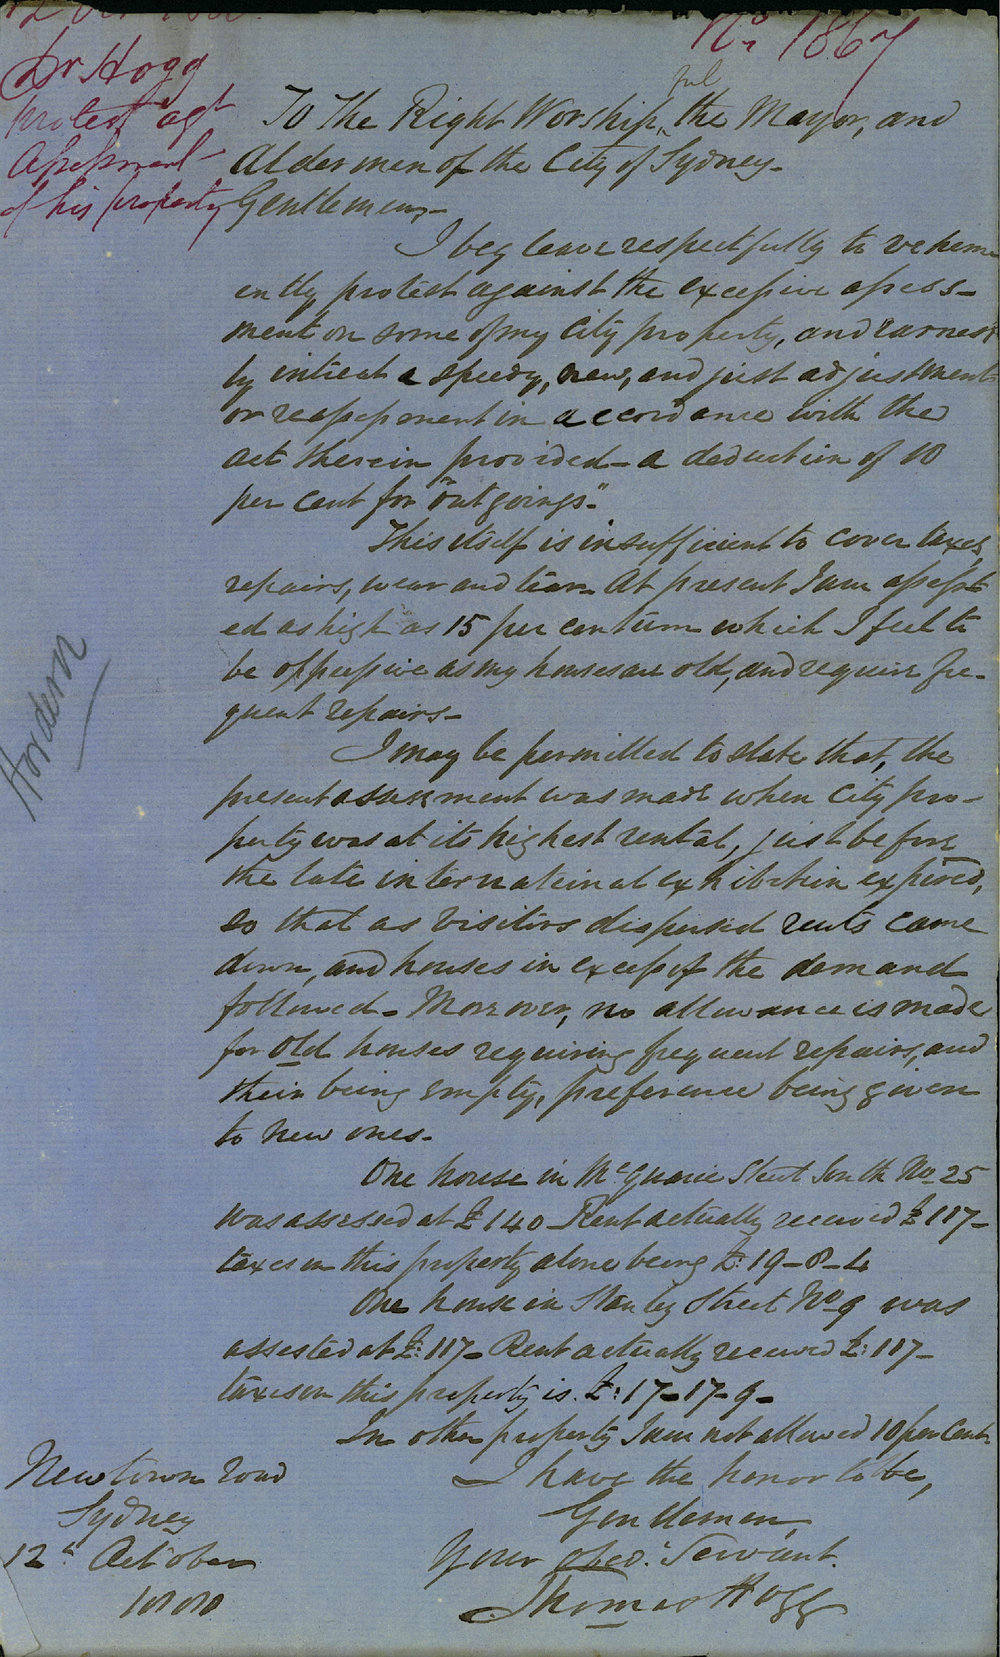 No. 1867
Dr Hogg
protest agt
Assessment
of his property
To The Right Worshipful the Mayor, and
Aldermen of the City of Sydney-
Gentlemen,-
I beg leave respectfully to vehem-
ently protest against the excessive assess-
ment on some of my City property, and earnest
ly intreat a speedy, new, and just adjustment
or reassessment in accordance with the
act therein provided - a deduction of 10
per cent for "outgoings."
This itself is insufficient to cover taxes,
repairs, wear and tear. At present I am assess
ed as high as 15 per centum which I feel to
be oppressive as my houses are old, and require fre-
quent repairs-
I may be permitted to state that, the
present assessment was made when City pro-
perty was at its highest rental, just before
the late international exhibition expired,
so that as visitors dispersed rents came
down, and houses in excess of the demand
followed - Moreover, no allowance is made
for old houses requiring frequent repairs, and
their being empty, preference being given
to new ones-
One house in McQuarie Street South No 25
was assessed at £140 - Rent actually received £117-
taxes on this property alone being £:19-8-4
One house in Stanley Street No 9 was
assessed at £:117- Rent actually received £:117-
taxes on this property is £:17-17-9-
In other property I am not allowed 10 per Cent-
I have the honor to be,
Gentlemen,
Your obed: Servant.
Thomas Hogg
Newtown road
Sydney
12th October
1880
Hordern